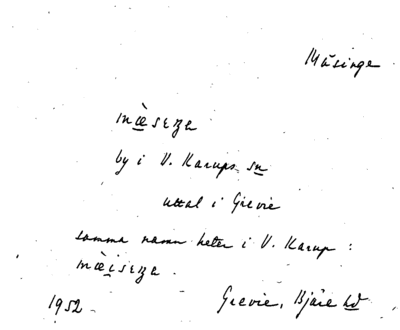 Måsinge
mæ̀sɛŋa
by i V. Karups sn
uttal i Grevie
samma namn heter i V. Karup :
mæ̀isɛŋa .
1952 Grevie, Bjäre hd